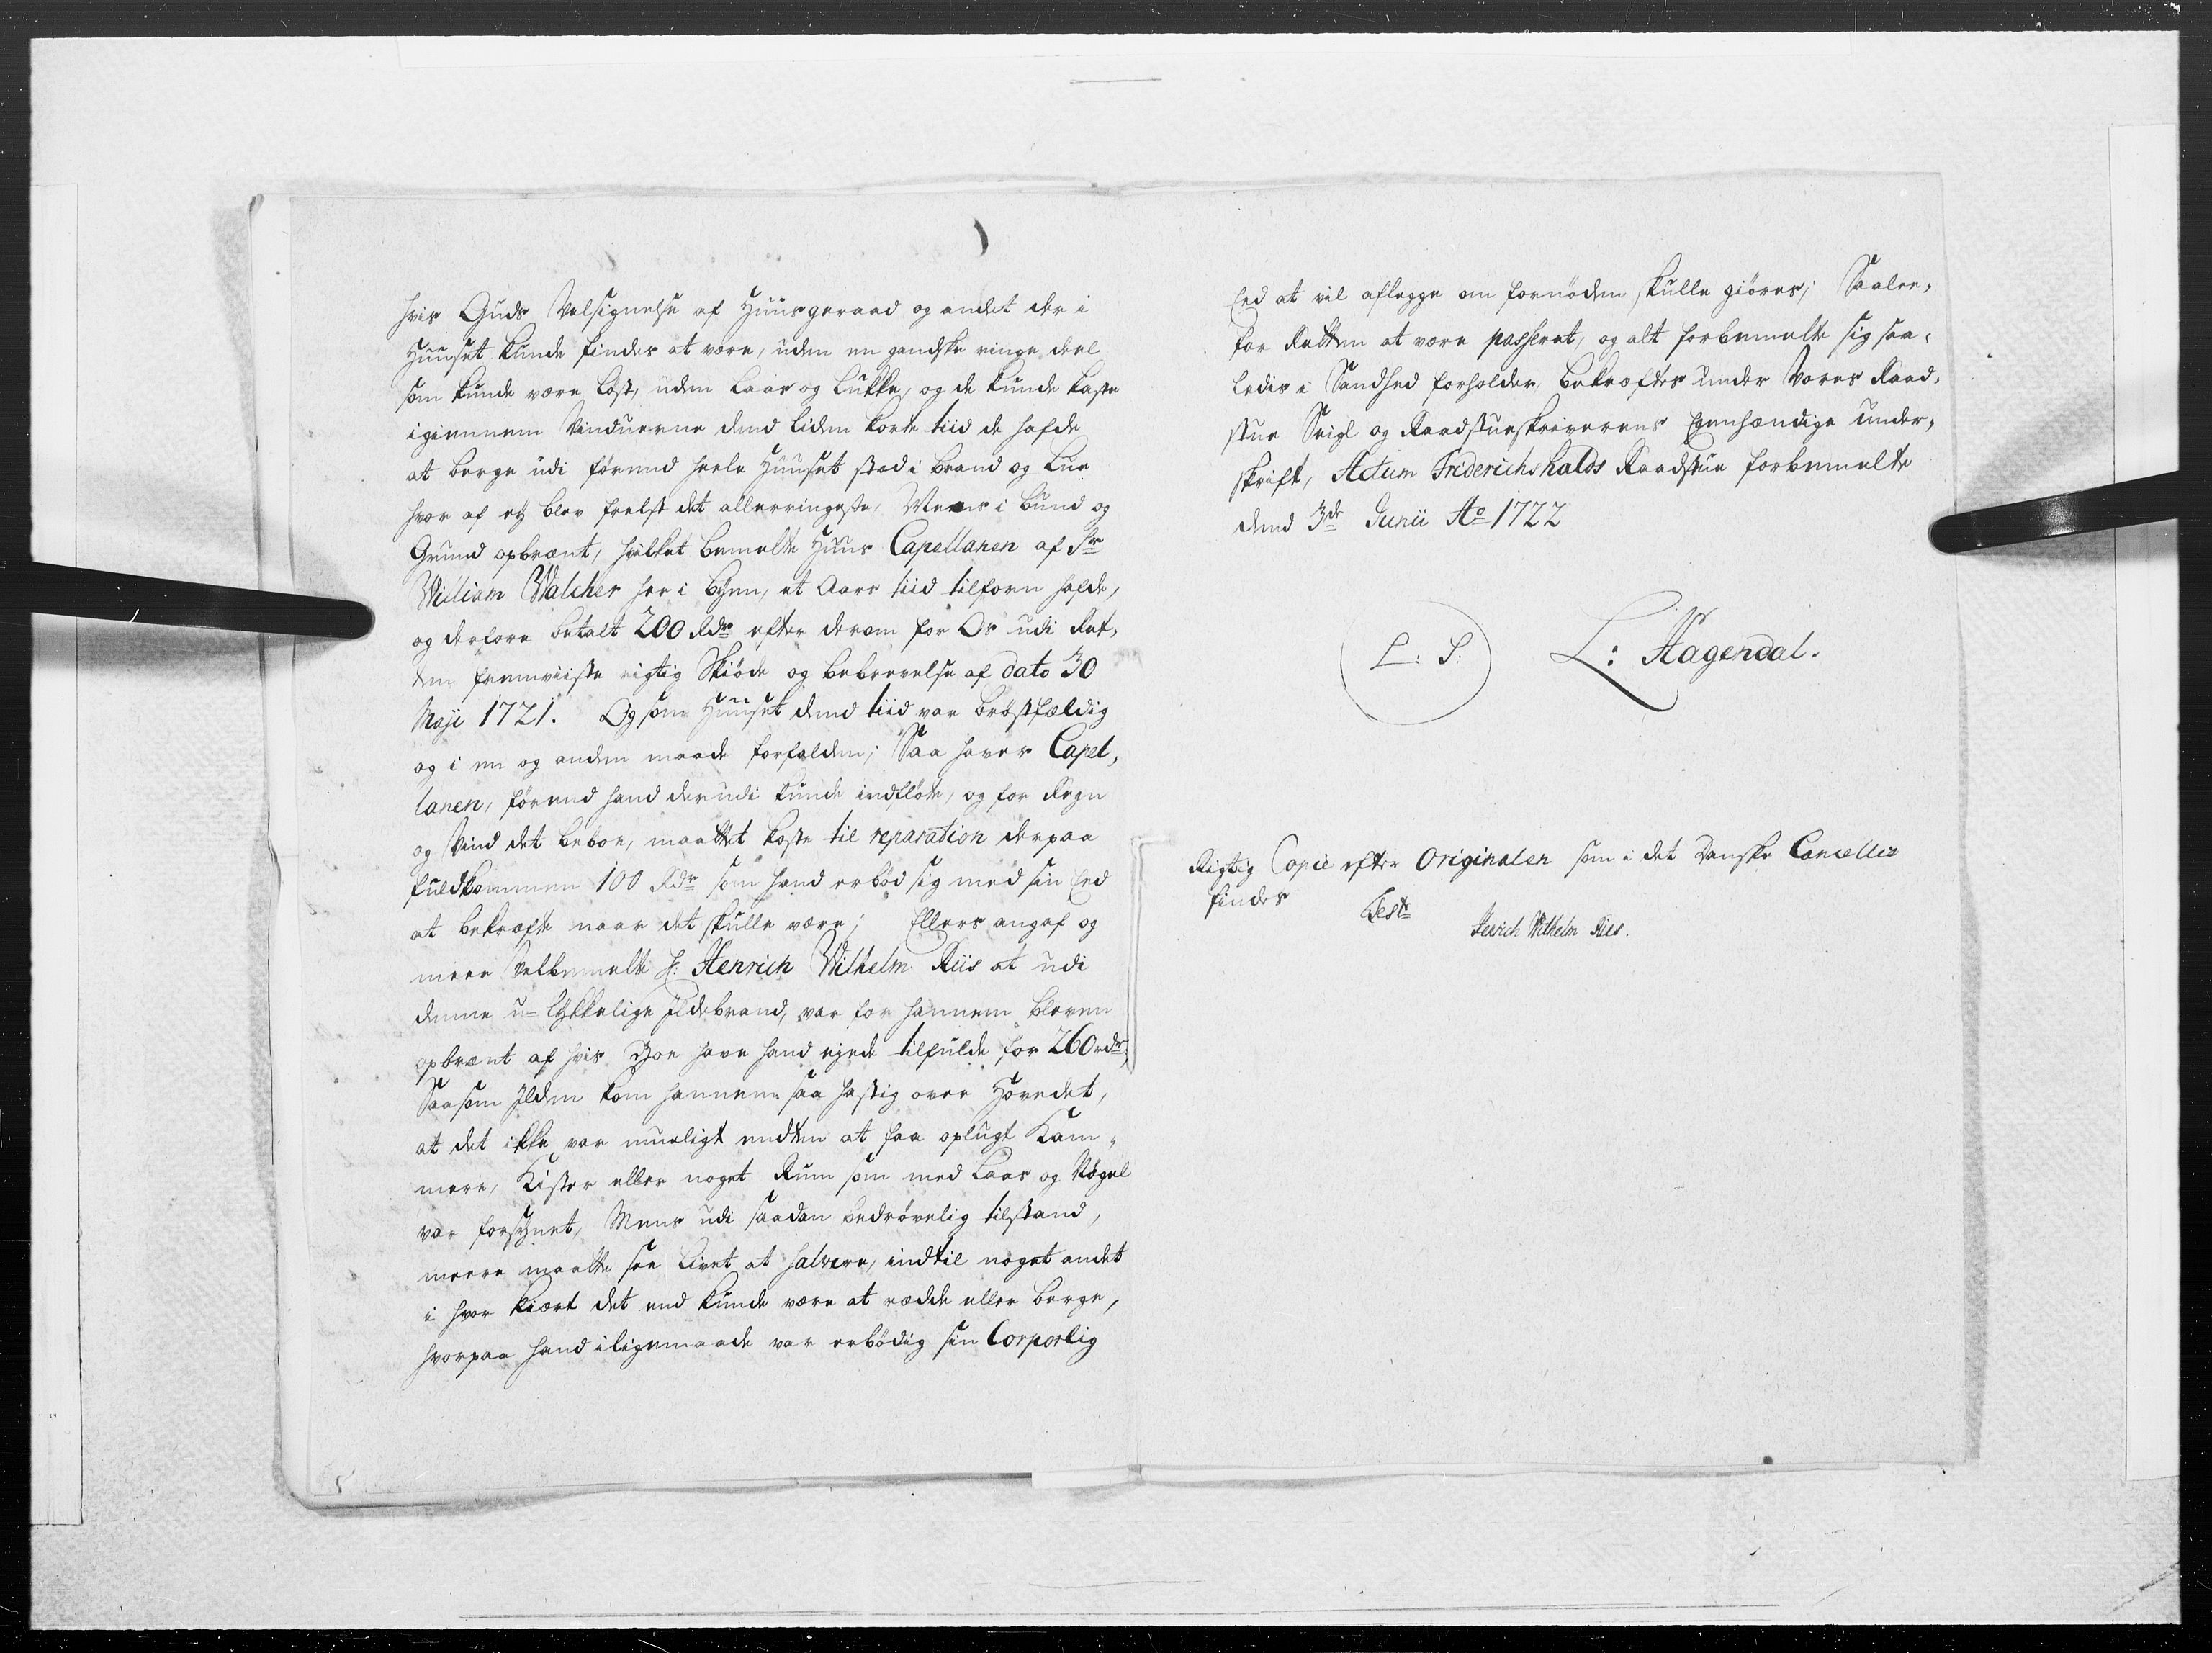 hvis Guds Velsignelse af Huusgeraad og andet der i
Huuset kunde findes at være, uden en gandske ringe deel
som kunde være løst, uden Laas og Lukke, og de kunde kaste
igiennem Vinduerne dend liden korte tiid de hafde
at berge udi førend heele Huuset stod i brand og Lue
hvor af ey blev frelst det allerringeste, Mens i bund og
Grund opbrænt, hvilket bemelte Huus Capellanen af Sr
William Walcher her i byen, et Aars tiid tilforn hafde,
og derfore betalt 200 Rdr efter derom for Os udi Ret,
ten fremviiste rigtig Skiøde og bebrevelse af dato 30
Maji 1721. Og som Huuset dend tiid var brøstfældig
og i en og anden maade forfalden; Saa haver Capel,
lanen, førend hand derudi kunde indflöte, og for Regn
og Vind det beboe, maattet koste til reparation derpaa
fuldkommen 100 Rdr som hand erbød sig med sin Eed
at bekræfte naar det skulle være; Ellers angaf og
meer Velbemelte H: Henrich Wilhelm Riis at udi
denne u-lykkelige Ildebrand, var for hannem bleven
opbrænt af hvis Boe have hand ejede tilfulde for 260 rdr;
Saasom Ilden kom hannem saa hastig over Hovedet,
at det ikke var mueligt endten at faa oplugt Kam,
mere, Kister eller noget Rum som med Laas og Nøgel
var forsynet, Mens udi saadan bedrøvelig tilstand,
meere maatte see Livet at salvere, indtil noget andet
i hvor kiært det end kunde være at rædde eller berge,
hvorpaa hand iligemaade var erbødig sin Corporlig
Eed at vil aflegge om fornöden skulle giöres; Saalee,
for Retten at være passeret, og alt forbemelte sig saa,
ledis i Sandhed forholder, bekræftes under Vores Raad,
stue Seigl og Raadstueskriverens Egenhændige under,
skrift, Actum Friderichshalds Raadstue forbemelte
dend 3de Junii Ao 1722
L: S:
L: Hagendal.
Rigtig Copie efter Originalen som i det Danske Cancellie
findes
Test
Henrich Wilhelm Riis.